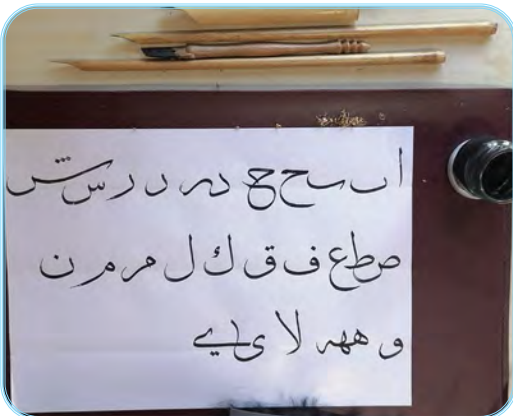 ا ں ٮح ح در د ر س ش
ص ط ع ف ق ك ل مر م ن
و ههہ لا ى ے